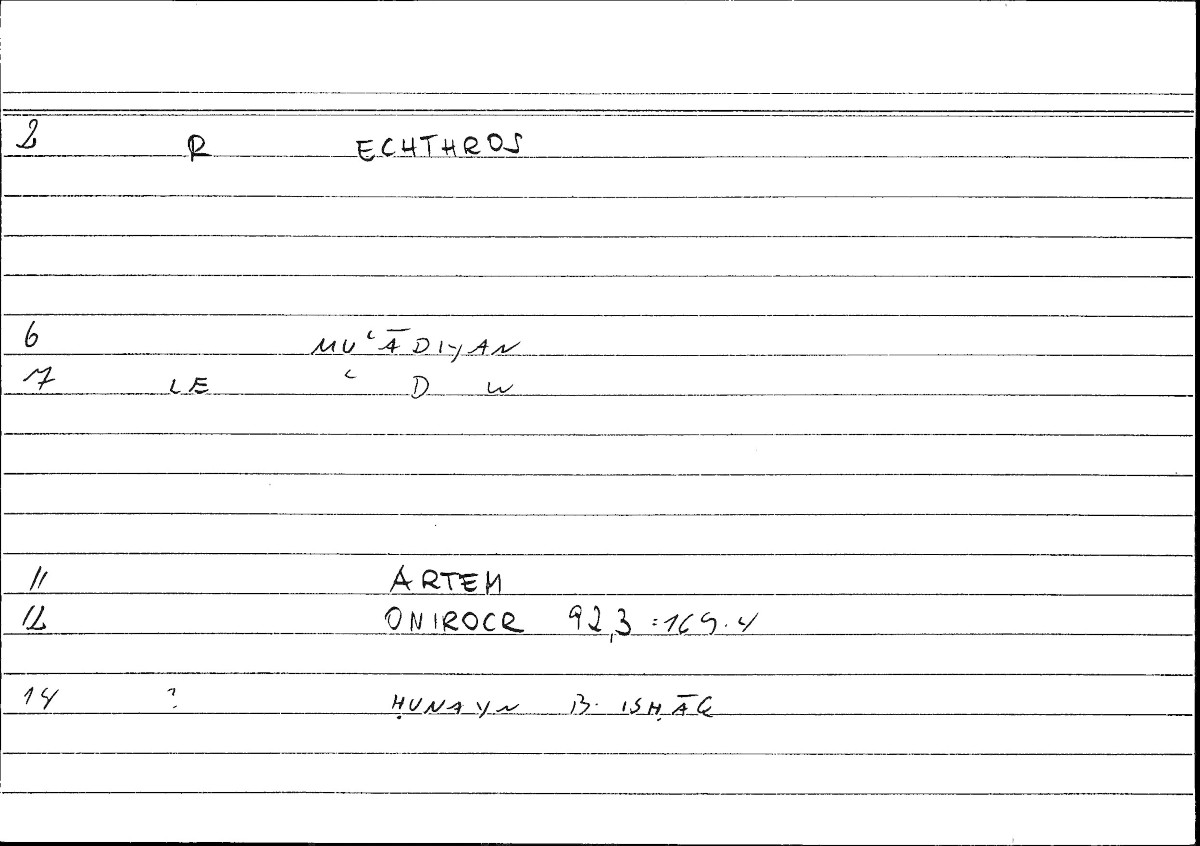 2 R ECHTHROS
6 MUʿĀDIYAN
7 LE ʿ D W
11 ARTEM
12 ONIROCR 92,3 = 169.4
14 ? ḤUNAYN B. ISḤĀQ